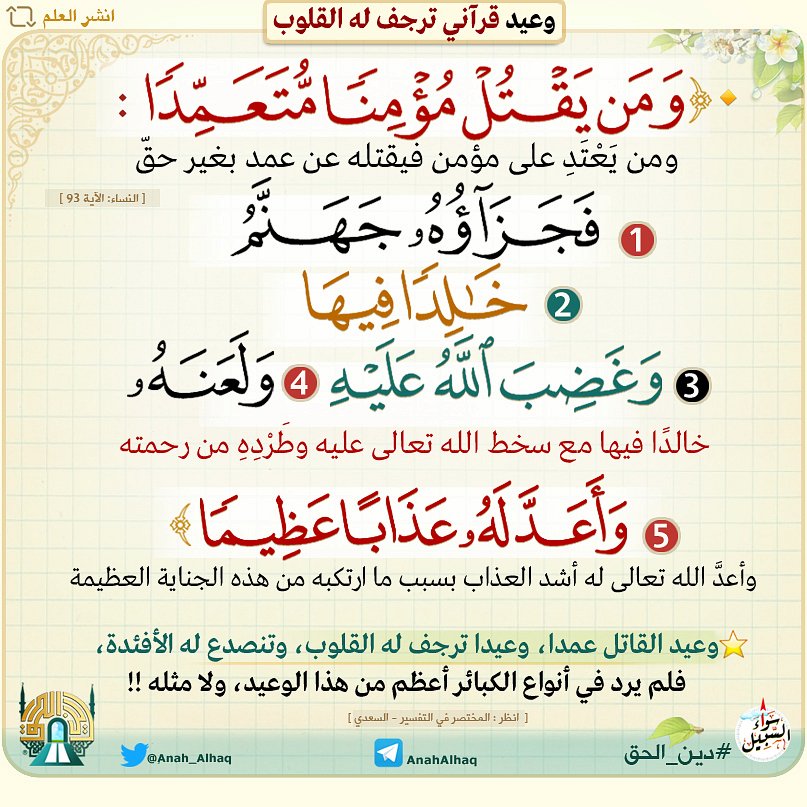 انشر العلم
وعيد قرآني ترجف له القلوب
﴿وَمَن يَقْتُلْ مُؤْمِنًا مُّتَعَمِّدًا :
ومن يَعْتَدِ على مؤمن فيقتله عن عمد بغير حقّ
[ النساء: الآية 93 ]
1 فَجَزَآؤُهُۥ جَهَنَّمُ
2 خَٰلِدًا فِيهَا
3 وَغَضِبَ ٱللَّهُ عَلَيْهِ 4 وَلَعَنَهُۥ
خالدًا فيها مع سخط الله تعالى عليه وطَرْدِهِ من رحمته
5 وَأَعَدَّ لَهُۥ عَذَابًا عَظِيمًا﴾
وأعدَّ الله تعالى له أشد العذاب بسبب ما ارتكبه من هذه الجناية العظيمة
وعيد القاتل عمدا، وعيدا ترجف له القلوب، وتنصدع له الأفئدة،
فلم يرد في أنواع الكبائر أعظم من هذا الوعيد، ولا مثله !!
[ انظر : المختصر في التفسير - السعدي ]
سواء السبيل
#دين_الحق
AnahAlhaq
@Anah_Alhaq